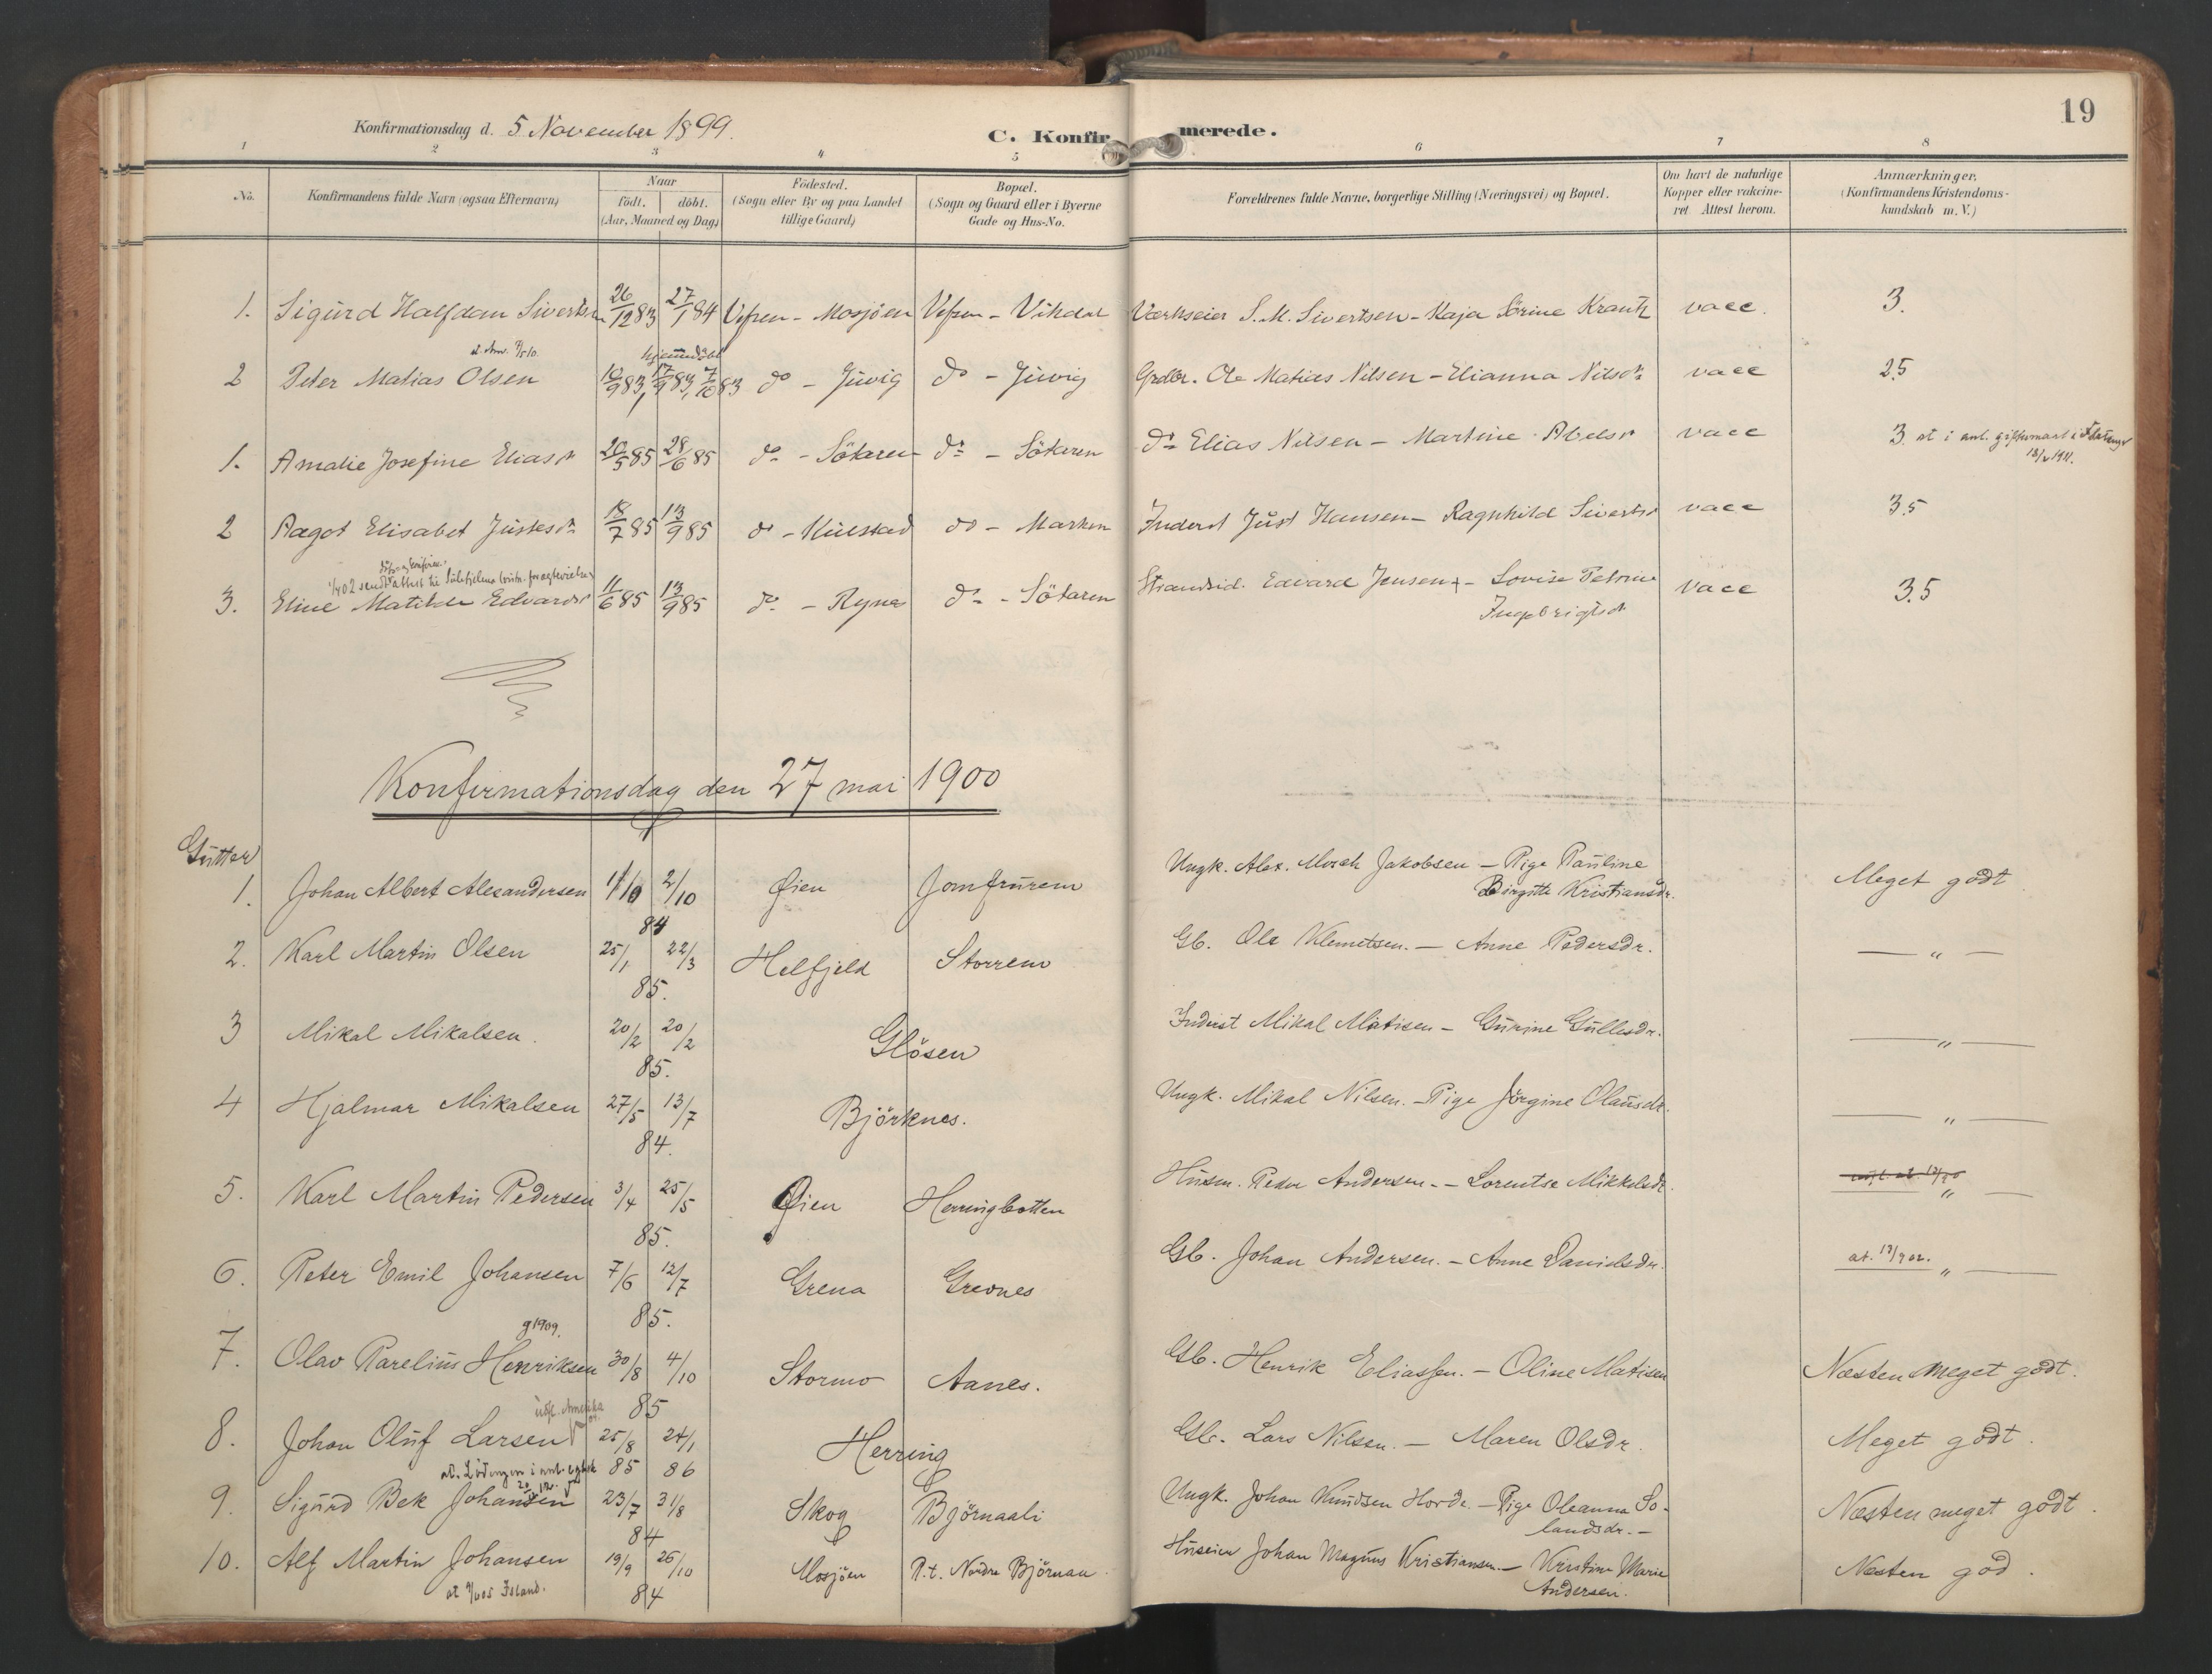 19
Konfirmationsdag d. 5 November 1899.
C. Konfirmerede.
1 2 3 4 5 6 7 8
No.
Konfirmandens fulde Navn (ogsaa Efternavn)
Naar
födt. döbt.
(Aar, Maaned og Dag)
Födested.
(Sogn eller By og paa Landet
tillige Gaard)
Bopæl.
(Sogn og Gaard eller i Byerne
Gade og Hus-No.
Forældrenes fulde Navne, borgerlige Stilling (Næringsvei) og Bopæl.
Om havt de naturlige
Kopper eller vakcine-
ret Attest herom.
Anmærkninger.
(Konfirmandens Kristendoms-
kundskab m. V.)
1. Sigurd Halfdan Sivertsen 26/12 83 27/1 84 Vefsen - Mosjöen Vefsen - Vikdal Værkseier S. M. Sivertsen - Kaja Sörine Krantz vacc. 3.
hjemmedöbt
2 Peter Matias Olsen 10/9 83, 17/9 83, 7/10 83 do - Juvig do - Juvig Grdbr. Ole Matias Nilsen - Elianna Nilsdr vacc 2.5
1. Amalie Josefine Eliasdr 20/5 85 28/6 85 do - Sötaren do - Sötaren do Elias Nilsen - Martine Abelsdr vacc 3 at i anl. giftermaal
2 Aagot Elisabet Justesdr 18/7 85 13/9 85 do - Kulstad do - Marken Inderst Just Hansen - Ragnhild Sivertsdr vacc 3.5
3. Eline Matilde Edvardsdr 11/6 85 13/9 85 do - Rynes do - Sötaren Strandsid. Edvard Jensen + - Lovise Petrine vacc 3.5
Ingebrigtsdr
Konfirmationsdag den 27 mai 1900
Gutter
1. Johan Albert Alexandersen 2/10 Øien Jomfrurem Ungk. Alex. Jakobsen - Pige Pauline Meget godt
Birgitte Kristiansdr.
84
2. Karl Martin Olsen 25/1 22/3 Helfjeld Storrem Gb. Ole Klemetsen. - Anne Pedersdr. — " —
85.
3 Mikal Mikalsen. 20/2 20/2 Glösen Inderst Mikal Matisen - Gurine Gullesdr. — " —
85.
4 Hjalmar Mikalsen 27/5 13/7 Björknes. Ungk. Mikal Nilsen. - Pige Jörgine Olausdr. — " —
84.
5. Karl Martin Pedersen 3/4 25/5 Øien Herringbotten Husm. Peder Andersen. - Lorentse Mikkelsdr. — " —
85.
6. Peter Emil Johansen 7/6 12/7 Grena Grevnes Gb. Johan Andersen. - Anne Danielsdr. at. 13/9 02. — " —
85.
g 1909.
7. Olav Parelius Henriksen 30/8 4/10 Stormo Aanes. Gb. Henrik Eliassen. - Oline Matisen Næsten meget godt.
85
udfl. Amerika
8. Johan Oluf Larsen 25/8 24/1 Herring Gb. Lars Nilsen. - Maren Olsdr. Meget godt.
85 86
at. Lödingen i anl.
9. Sigurd Bek Johansen 23/7 31/8 Skog Björnaali Ungk. Johan Knudsen Horde. - Pige Oleanna So- Næsten meget godt.
landsdr. -
84
10. Alf Martin Johansen 19/9 26/10 Mosjöen P.t. Nordre Björnaa. Huseier Johan Magnus Kristiansen. - Kristine Marie Næsten god.
Andersen.
Island.
84